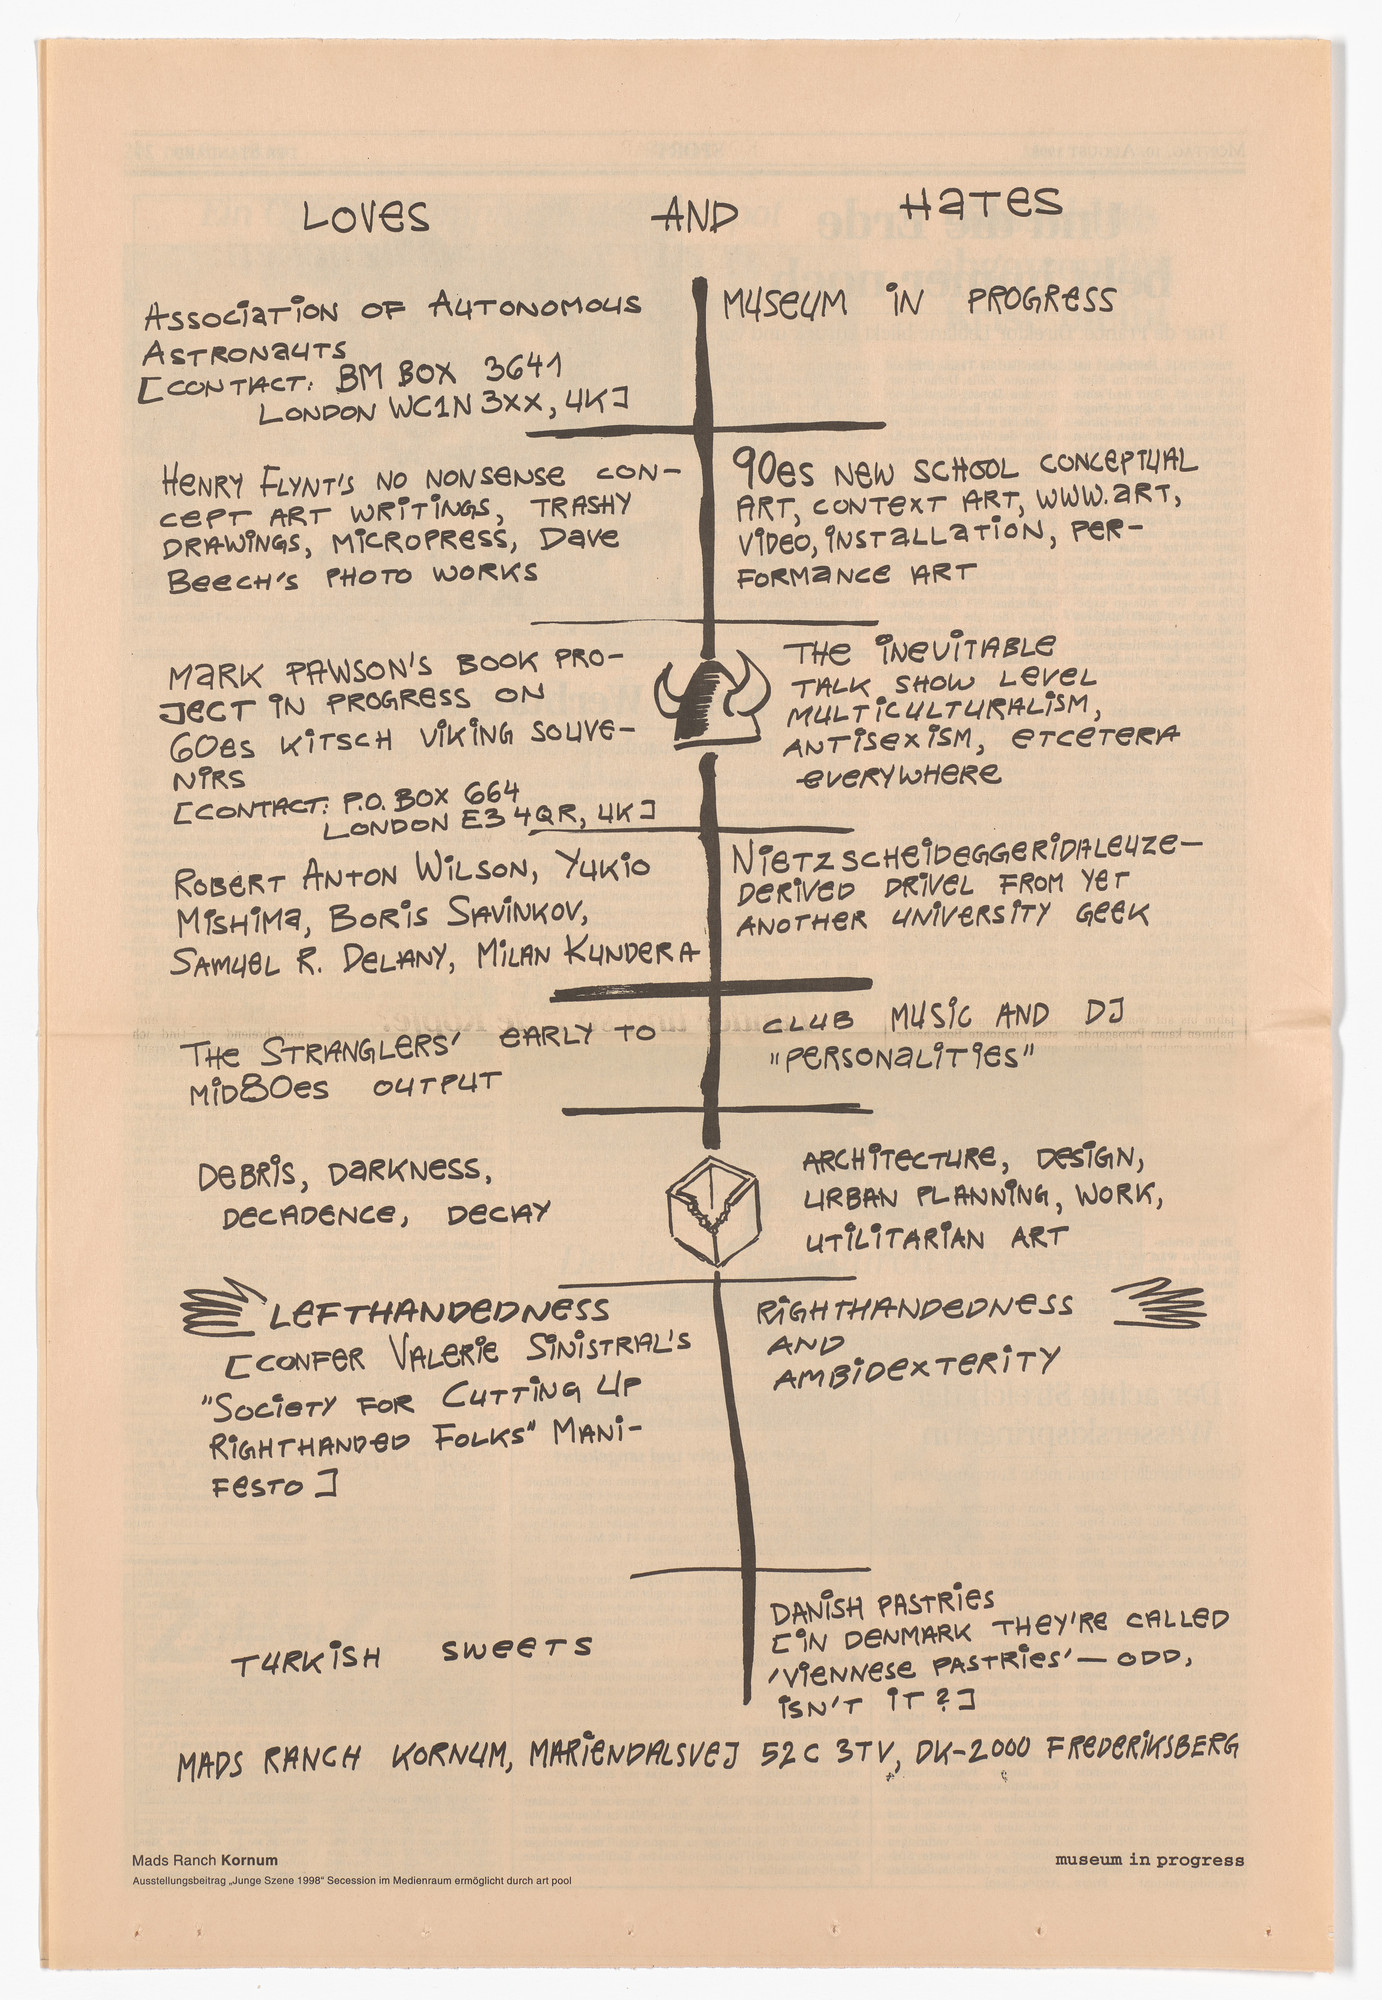 LOVES AND HATES
ASSOCIATION OF AUTONOMOUS
ASTRONAUTS
[CONTACT: BM BOX 3641
LONDON WC1N 3XX, UK]
MUSEUM IN PROGRESS
HENRY FLYNT'S NO NONSENSE CON-
CEPT ART WRITINGS, TRASHY
DRAWINGS, MICROPRESS, DAVE
BEECH'S PHOTO WORKS
90ES NEW SCHOOL CONCEPTUAL
ART, CONTEXT ART, WWW.ART,
VIDEO, INSTALLATION, PER-
FORMANCE ART
MARK PAWSON'S BOOK PRO-
JECT IN PROGRESS ON
60ES KITSCH VIKING SOUVE-
NIRS
[CONTACT: P.O. BOX 664
LONDON E3 4QR, UK]
THE INEVITABLE
TALK SHOW LEVEL
MULTICULTURALISM,
ANTISEXISM, ETCETERA
EVERYWHERE
ROBERT ANTON WILSON, YUKIO
MISHIMA, BORIS SAVINKOV,
SAMUEL R. DELANY, MILAN KUNDERA
NIETZSCHEIDEGGERIDALEUZE-
DERIVED DRIVEL FROM YET
ANOTHER UNIVERSITY GEEK
THE STRANGLERS' EARLY TO
MID80ES OUTPUT
CLUB MUSIC AND DJ
"PERSONALITIES"
DEBRIS, DARKNESS,
DECADENCE, DECAY
ARCHITECTURE, DESIGN,
URBAN PLANNING, WORK,
UTILITARIAN ART
LEFTHANDEDNESS
[CONFER VALERIE SINISTRAL'S
"SOCIETY FOR CUTTING UP
RIGHTHANDED FOLKS" MANI-
FESTO]
RIGHTHANDEDNESS
AND
AMBIDEXTERITY
TURKISH SWEETS
DANISH PASTRIES
[IN DENMARK THEY'RE CALLED
'VIENNESE PASTRIES' — ODD,
ISN'T IT?]
MADS RANCH KORNUM, MARIENDALSVEJ 52C 3TV, DK-2000 FREDERIKSBERG
Mads Ranch Kornum
Ausstellungsbeitrag „Junge Szene 1998" Secession im Medienraum ermöglicht durch art pool
museum in progress